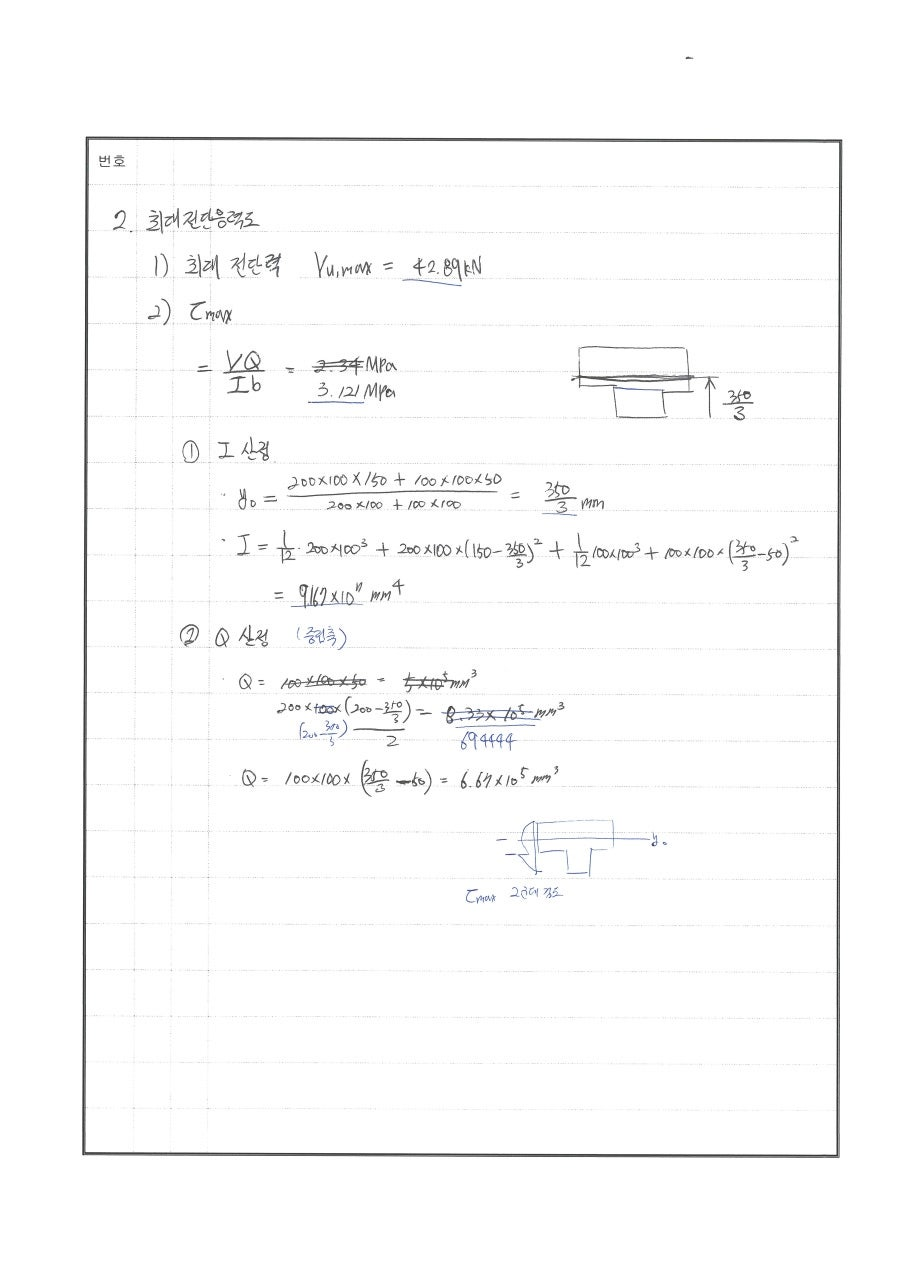 번호
2. 최대전단응력도
1) 최대 전단력 Vu,max = 42.89kN
2) τmax
= VQ/Ib = 2.34 MPa
3.121 MPa
350/3
① I 산정
· y₀ = (200×100×150 + 100×100×50)/(200×100 + 100×100) = 350/3 mm
· I = 1/12 · 200×100³ + 200×100×(150-350/3)² + 1/12 100×100³ + 100×100×(350/3-50)²
= mm⁴
② Q 산정 (중립축)
· Q = 100×100×50 = 5×10⁵ mm³
200×100×(200-350/3)/2 = 8.33×10⁵ mm³
(200-350/3) 694444
· Q = 100×100×(350/3-50) = 6.67×10⁵ mm³
y₀
τmax